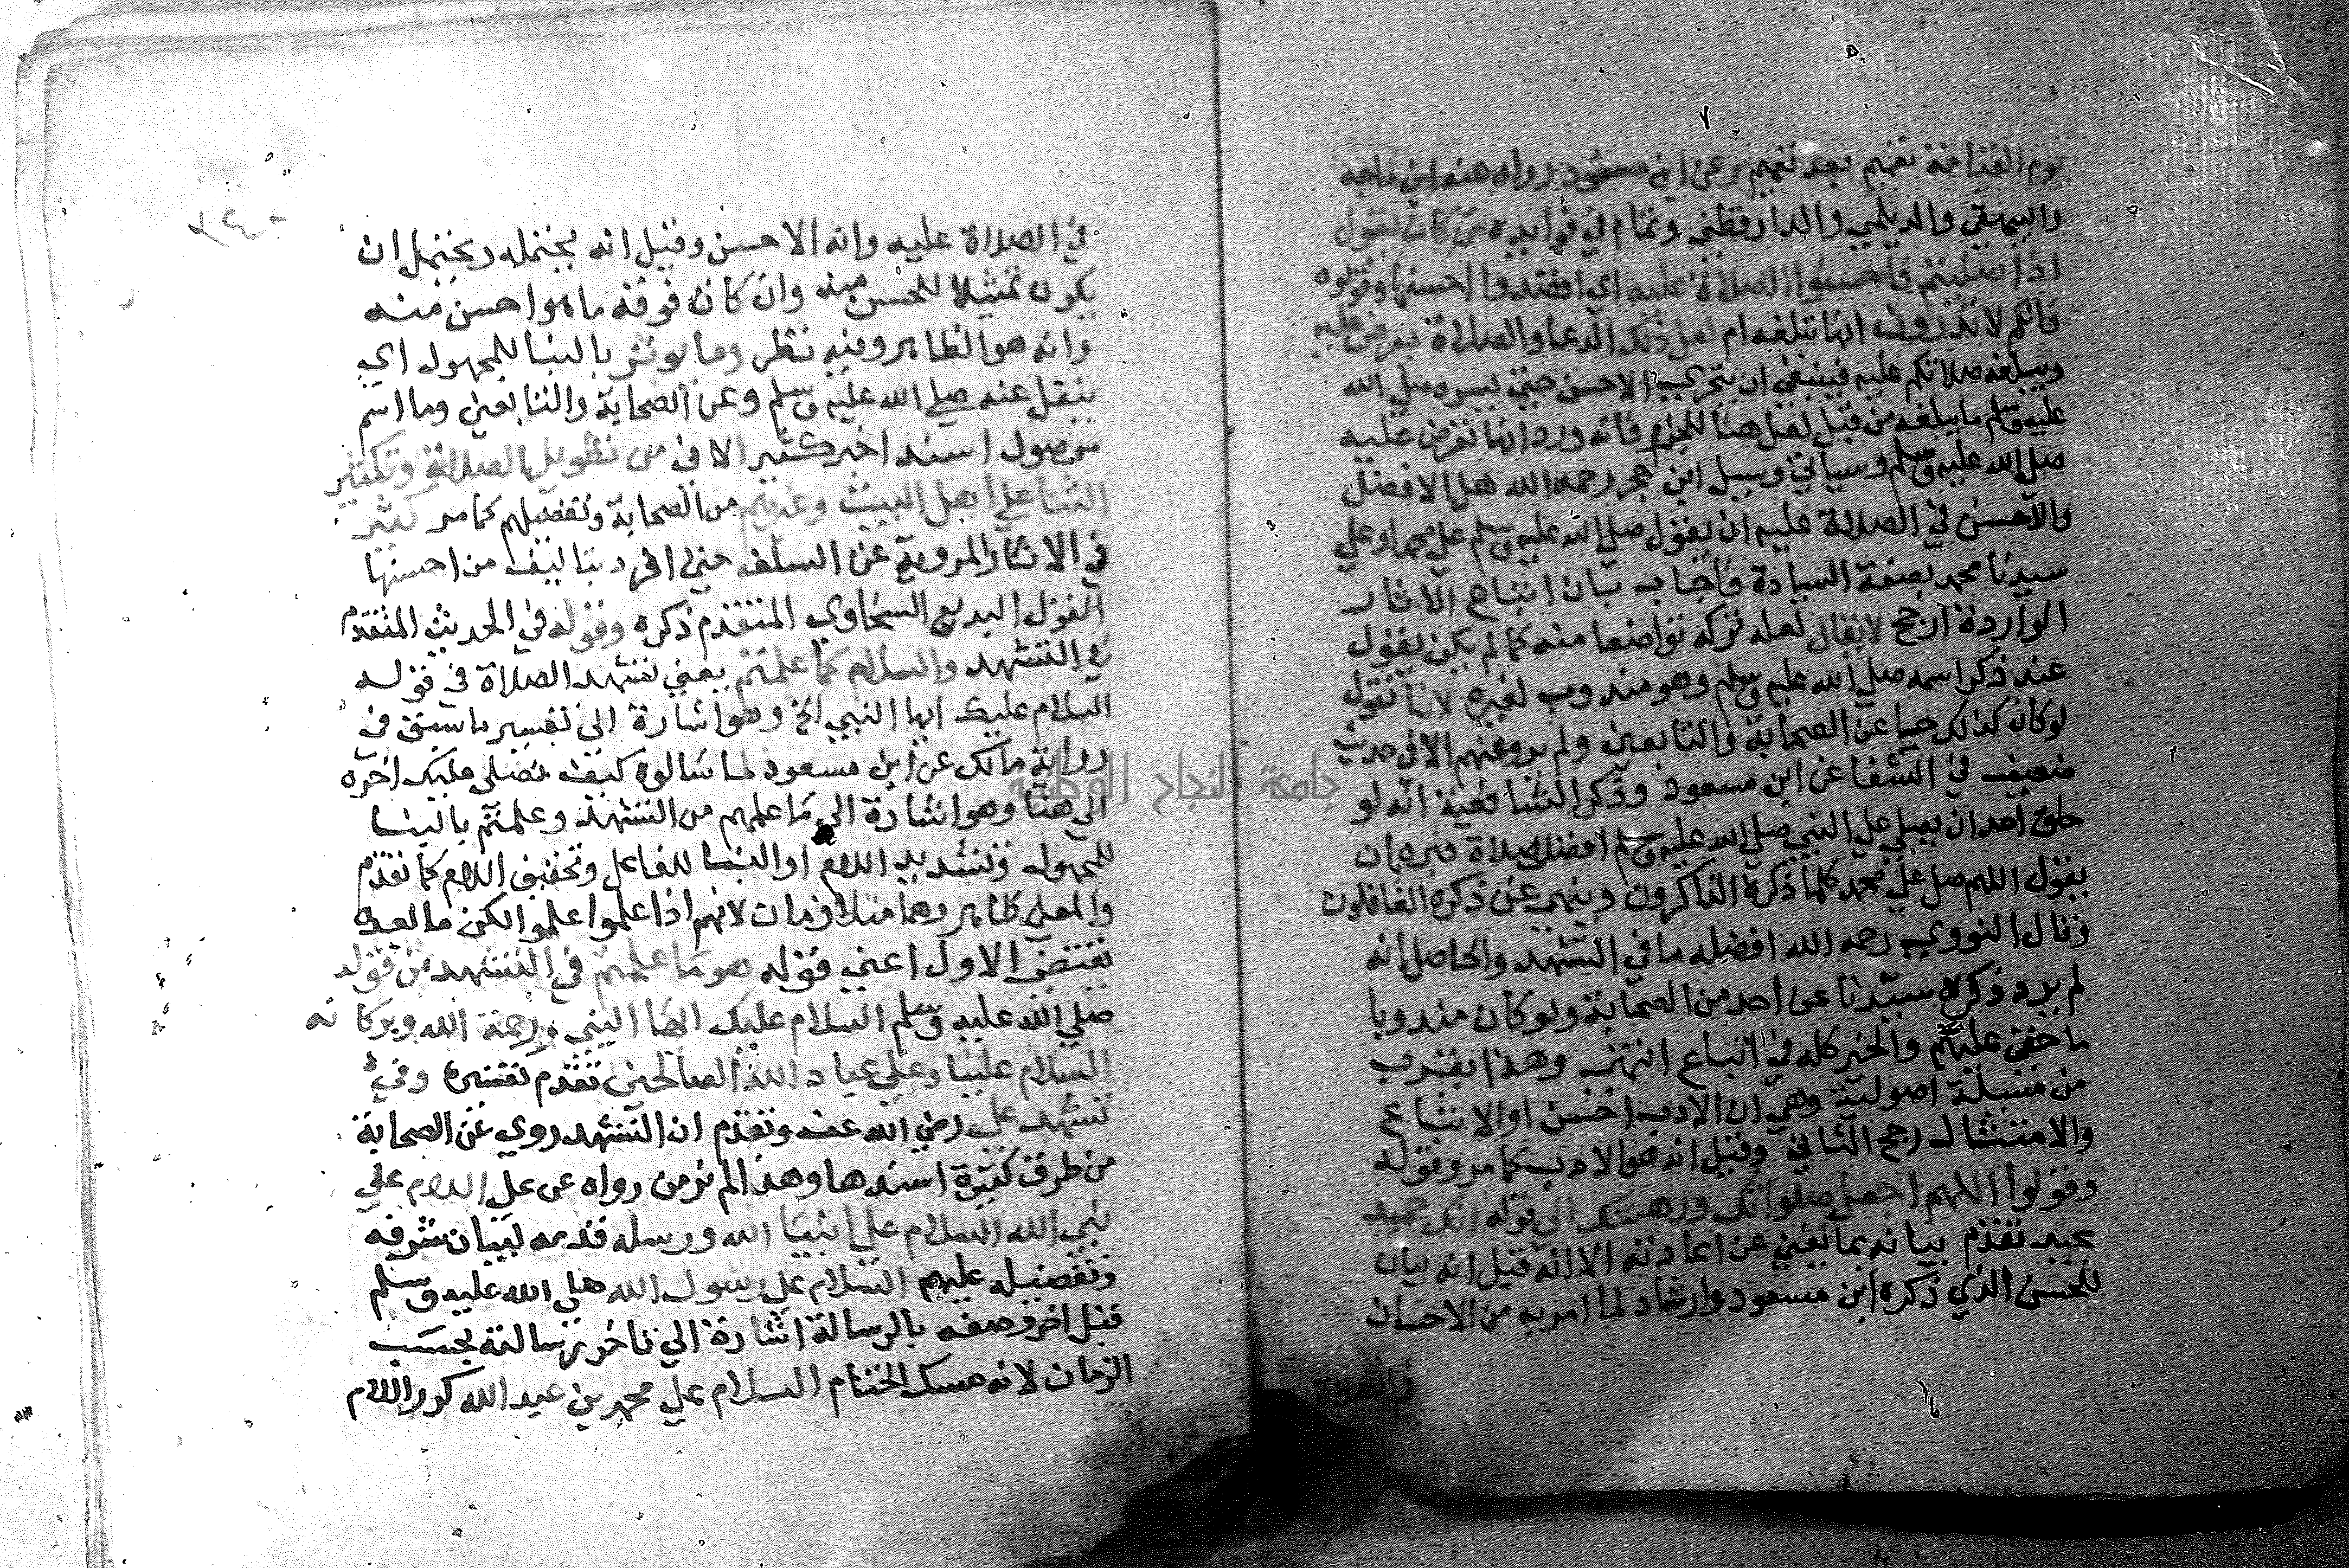 يوم القيامة تفهيم بعد تفهيم وعن ابن مسعود رواه عنه ابن ماجه
والبيهقي والديلمي والدارقطني وتمام في فوائده من كان يقول
اذا صليتم فاحسنوا الصلاة عليه اي اقصدوا احسنها وقولوه
فانكم لا تدرون انها تبلغه ام لعل ذلك الدعا والصلاة يعرض عليه
ويبلغه صلاتكم عليه فينبغي ان يتحري الاحسن حتي يسره صلي الله
عليه وسلم ما يبلغه من قبل لعل هنا للجزم فانه ورد انها تعرض عليه
صلي الله عليه وسلم وسياتي وسيل ابن حجر رحمه الله هل الافضل
والاحسن في الصلاة عليه ان يقول صلي الله عليه وسلم علي محمد او علي
سيدنا محمد بصفة السيادة فاجاب بان اتباع الاثار
الواردة ارجح لا يقال لعله تركه تواضعا منه كما لم يكن يقول
عند ذكر اسمه صلي الله عليه وسلم وهو مندوب لغيره لانا نقول
لو كان كذلك جا عن الصحابة والتابعين ولم يرو عنهم الا في حديث
ضعيف في الشفا عن ابن مسعود وذكر الشافعية انه لو
حلق احد ان يصلي علي النبي صلي الله عليه وسلم افضل صلاة فبره ان
يقول اللهم صل علي محمد كلما ذكره الذاكرون وينهي عن ذكره الغافلون
وقال النووي رحمه الله افضله ما في التشهد والحاصل انه
لم يرد ذكره سيدنا عن احد من الصحابة ولو كان مندوبا
ما خفي عليهم والخير كله في اتباع انتهي وهذا يقرب
من مسيلة اصولية وهي ان الادب احسن او الاتباع
والامتثال رجح الثاني وقيل انه هو الادب كما مر وقوله
وقولوا اللهم اجعل صلواتك ورحمتك الي قوله انك حميد
مجيد تقدم بيانه بما يغني عن اعادته الا انه قيل انه بيان
للحسن الذي ذكره ابن مسعود وارشاد لما امر به من الاحسان
في الصلاة
في الصلاة عليه وانه الاحسن وقيل انه يحتمله ويحتمل ان
يكون تمثيلا للحسن منه وان كان فوقه ما هو احسن منه
وانه هو الظاهر وفيه نظر وما يوثر بالبنا للمجهول اي
ينقل عنه صلي الله عليه وسلم وعن الصحابة والتابعين وما اسم
موصول اسند اخبر كثير الا في من تطويل الصلاة وتكثير
الثنا علي اهل البيت وغيرهم من الصحابة وتفضيلهم كما مر كثير
في الاثار المروية عن السلف حتي افرد بتاليف من احسنها
القول البديع للسخاوي المتقدم ذكره وقوله في الحديث المتقدم
في التشهد والسلام كما علمتم يعني تشهد الصلاة في قوله
السلام عليك ايها النبي الخ وهو اشارة الي تفسير ما سبق في
رواية مالك عن ابن مسعود لما سالوه كيف نصلي عليك اخره
الي هنا وهو اشارة الي ما علمهم من التشهد وعلمتم بالبنا
للمجهول وتشديد اللام او البنا للفاعل وتخفيف اللام كما تقدم
والمعني ظاهر وهما متلازمان لانهم اذا علموا علموا لكن ما بعده
يقتضي الاول اعني قوله هو ما علمهم في التشهد من قوله
صلي الله عليه وسلم السلام عليك ايها النبي ورحمة الله وبركاته
السلام علينا وعلي عباد الله الصالحين تقدم تفسيره وفي
تشهد علي رضي الله عنه وتقدم ان التشهد روي عن الصحابة
من طرق كثيرة اسندها وهذا لم نر من رواه عن علي السلام علي
نبي الله السلام علي انبيا الله ورسله قدمه لبيان شرفه
وتفضيله عليهم السلام علي رسول الله صلي الله عليه وسلم
قيل اخر وصفه بالرسالة اشارة الي تاخر رسالته بحسب
الزمان لانه مسك الختام السلام علي محمد بن عبد الله كرر السلام
جامعة النجاح الوطنية